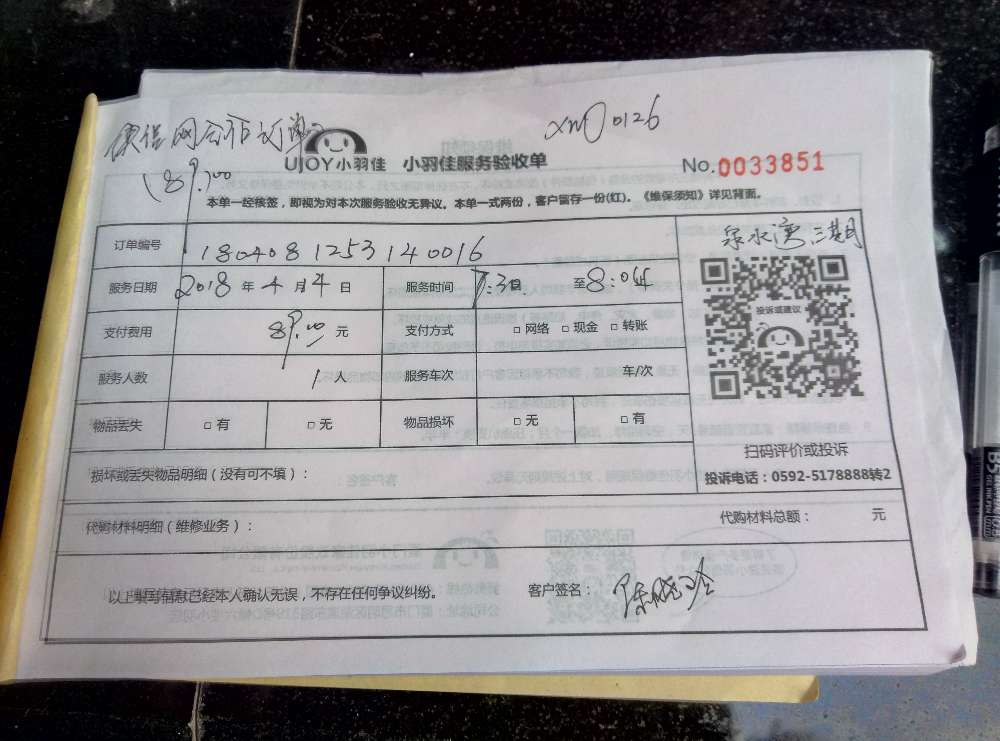 xm 0126
UJOY小羽佳 小羽佳服务验收单
No.0033851
本单一经核签，即视为对本次服务验收无异议。本单一式两份，客户留存一份(红)。《维保须知》详见背面。
订单编号 180408125314 0016
泉水湾三期
服务日期 2018 年 4 月 4 日 服务时间 至8:
投诉或建议
支付费用 89.00 元 支付方式 □ 网络 □ 现金 □ 转账
服务人数 1 人 服务车次 车/次
物品丢失 □ 有 □ 无 物品损坏 □ 无 □ 有
扫码评价或投诉
损坏或丢失物品明细（没有可不填）：
投诉电话：0592-5178888转2
代购材料明细（维修业务）： 代购材料总额： 元
以上填写信息已经本人确认无误，不存在任何争议纠纷。 客户签名：